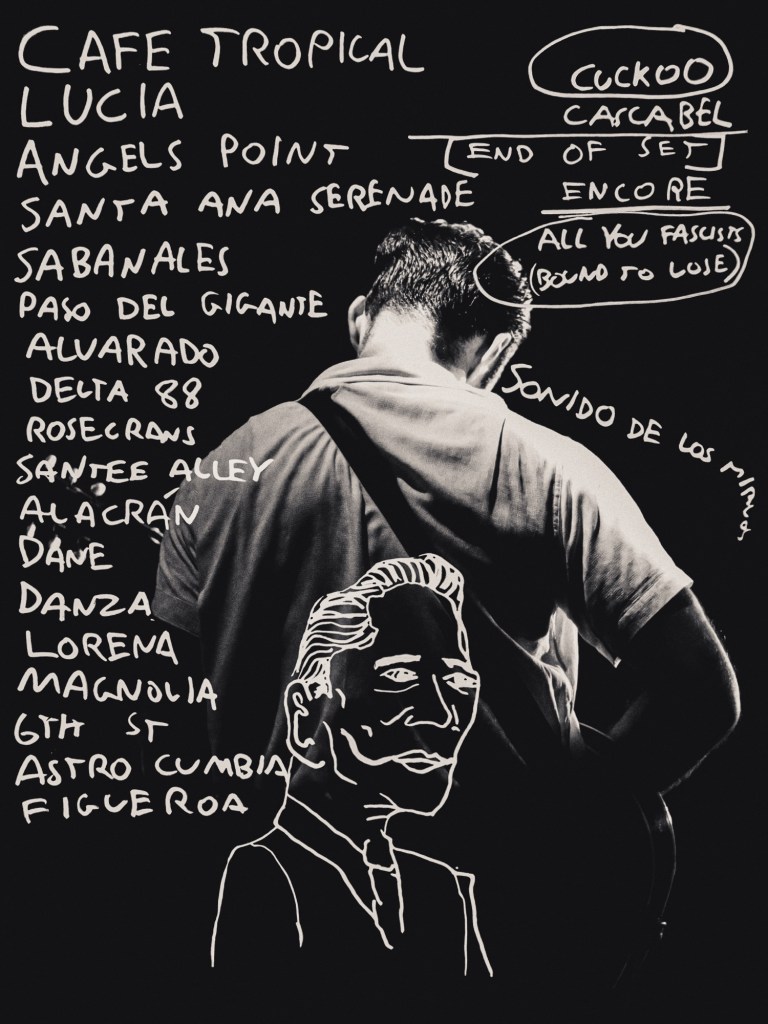 CAFE TROPICAL
LUCIA
ANGELS POINT
SANTA ANA SERENADE
SABANALES
PASO DEL GIGANTE
ALVARADO
DELTA 88
ROSECRANS
SANTEE ALLEY
ALACRÁN
DANE
DANZA
LORENA
MAGNOLIA
6TH ST
ASTRO CUMBIA
FIGUEROA
CUCKOO
CASCABEL
[END OF SET]
ENCORE
ALL YOU FASCISTS
(BOUND TO LOSE)
SONIDO DE LOS